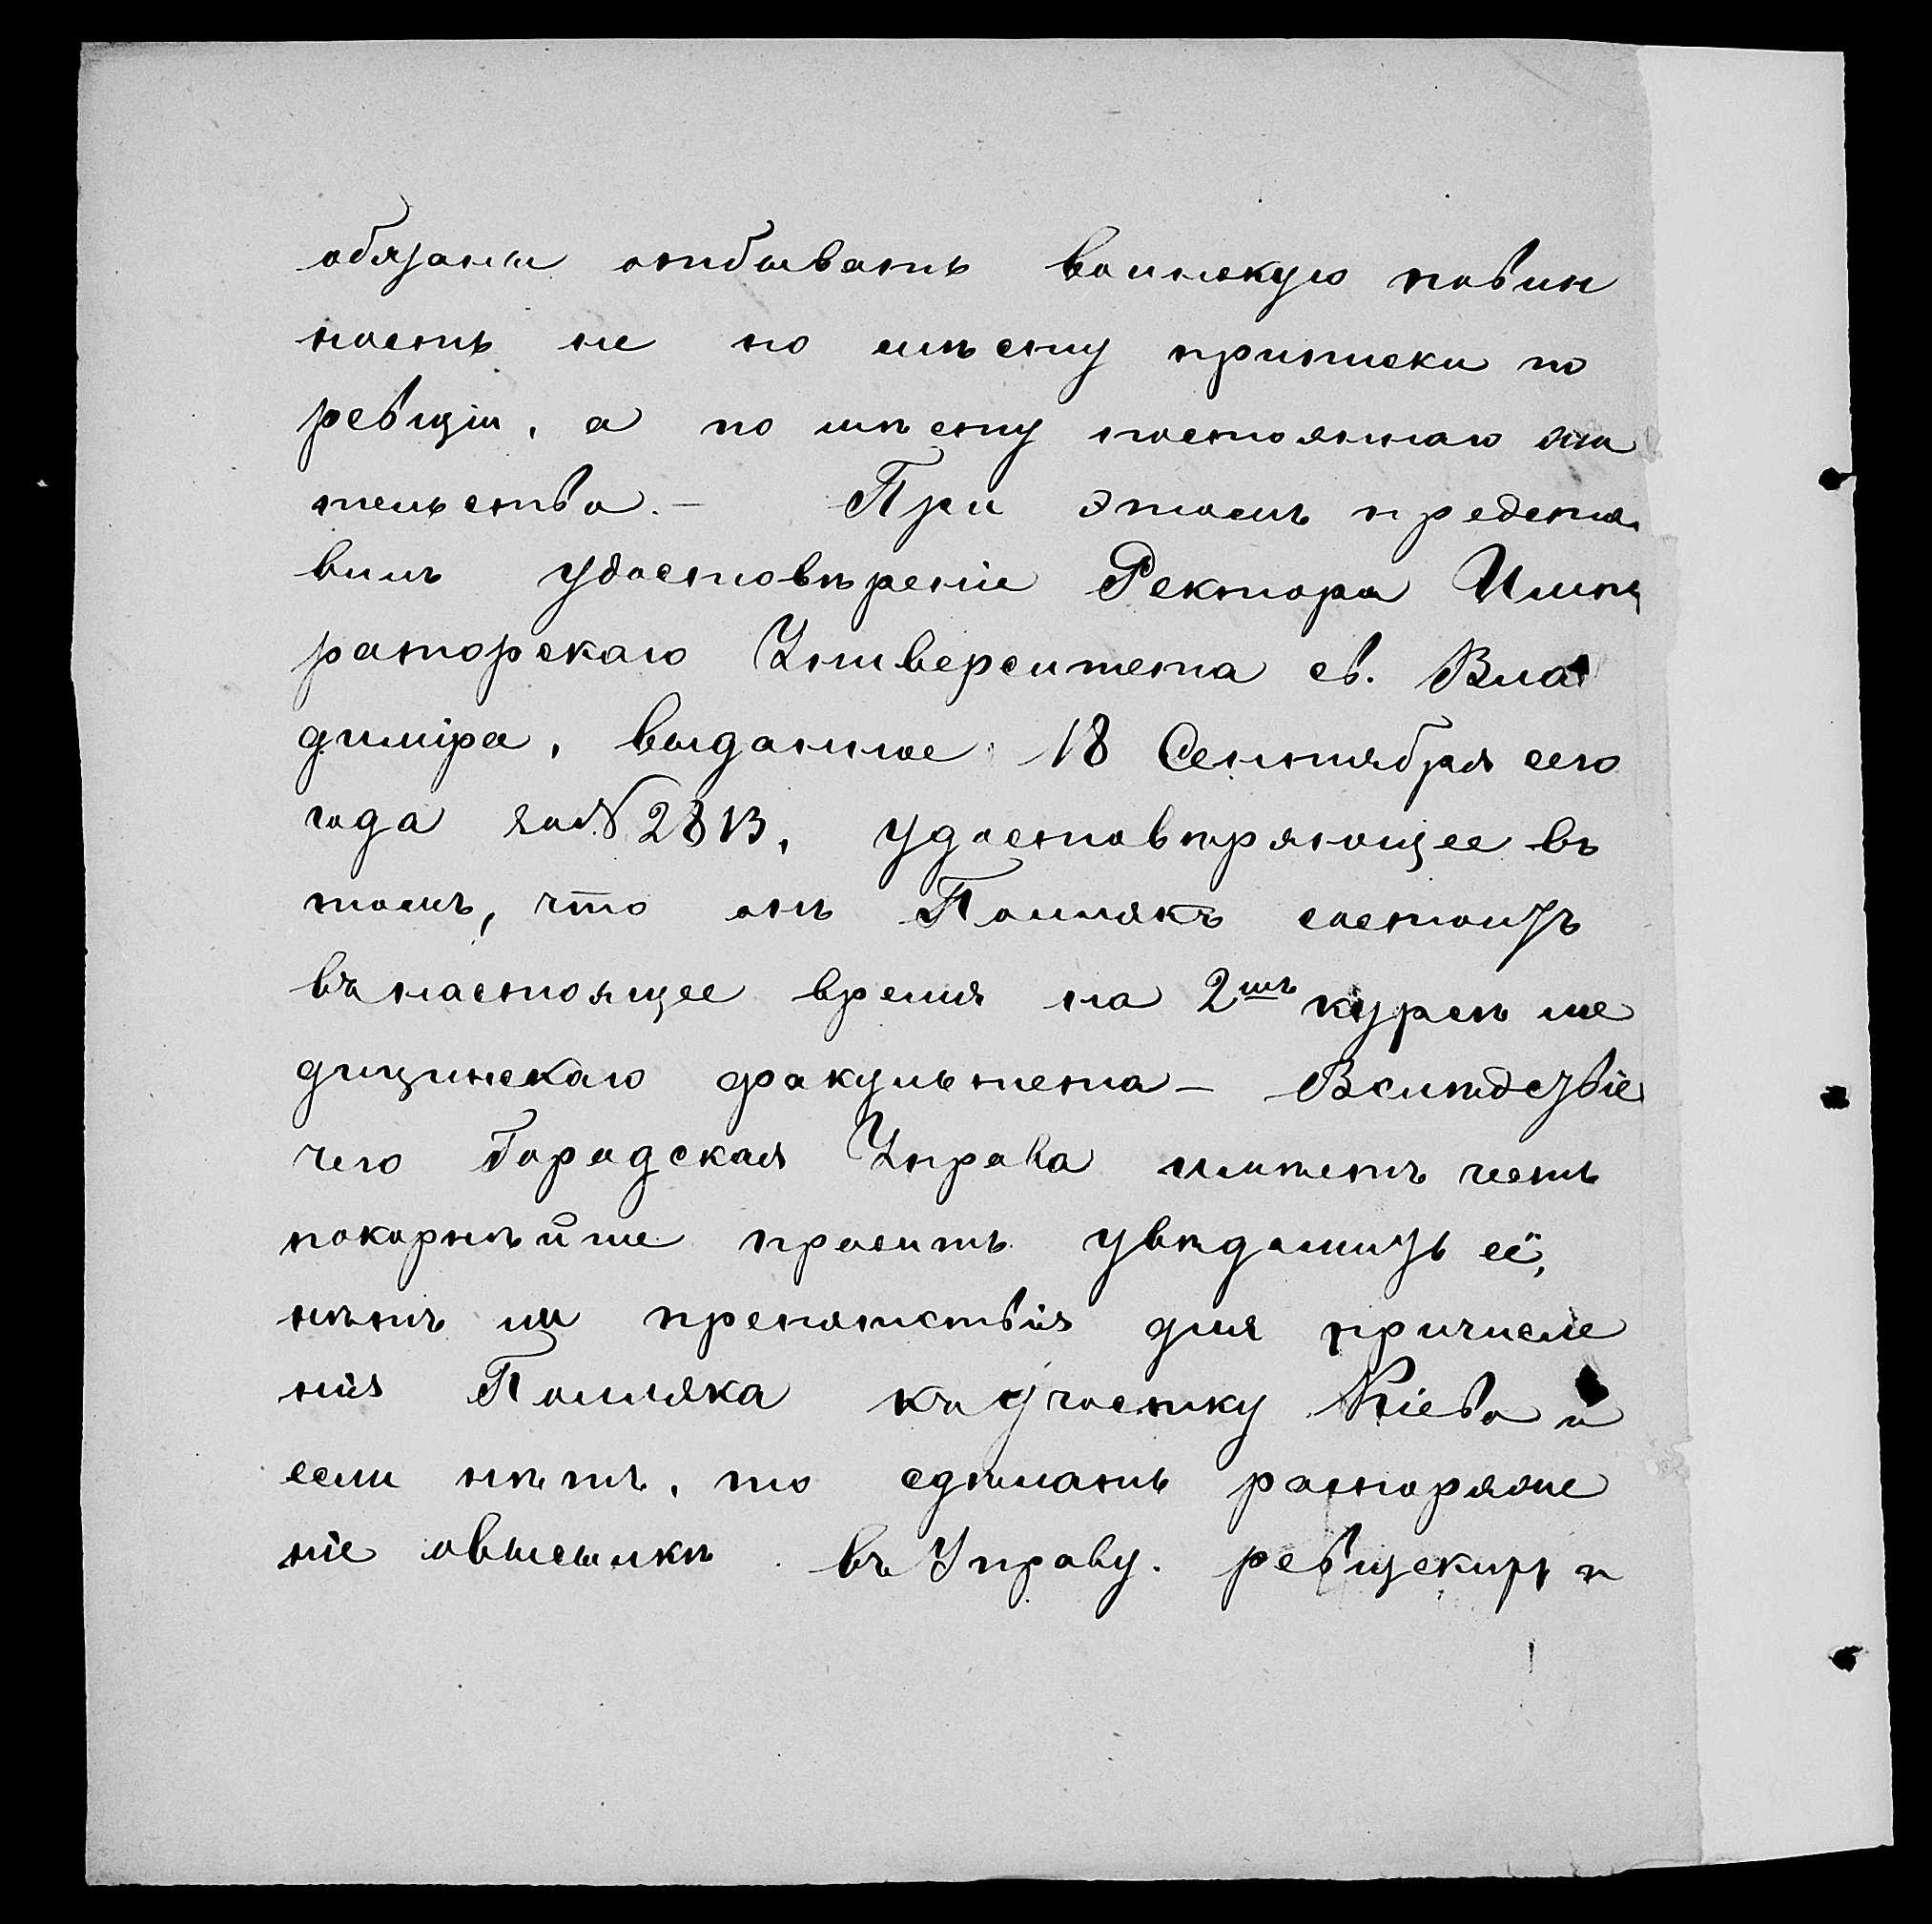 обязаны отбывать воинскую повин
ность не по мѣсту приписки по
ревизіи, а по мѣсту постояннаго жи
тельства.— При этомъ предста
вилъ удостовѣреніе Ректора Импе
раторскаго Университета св. Вла
диміра, выданное 18 Сентября сего
года за № 2813, удостовѣряющее въ
томъ, что онъ Полякъ состоитъ
въ настоящее время на 2мъ курсѣ ме
дицинскаго факультета— Вслѣдствіе
чего Городская Управа имѣетъ честь
покорнѣйше просить увѣдомить её,
нѣтъ ли препятствія для причисле
нія Поляка къ участку Кіева и
если нѣтъ, то сдѣлать распоряже
ніе о высылкѣ въ Управу. ревизскихъ